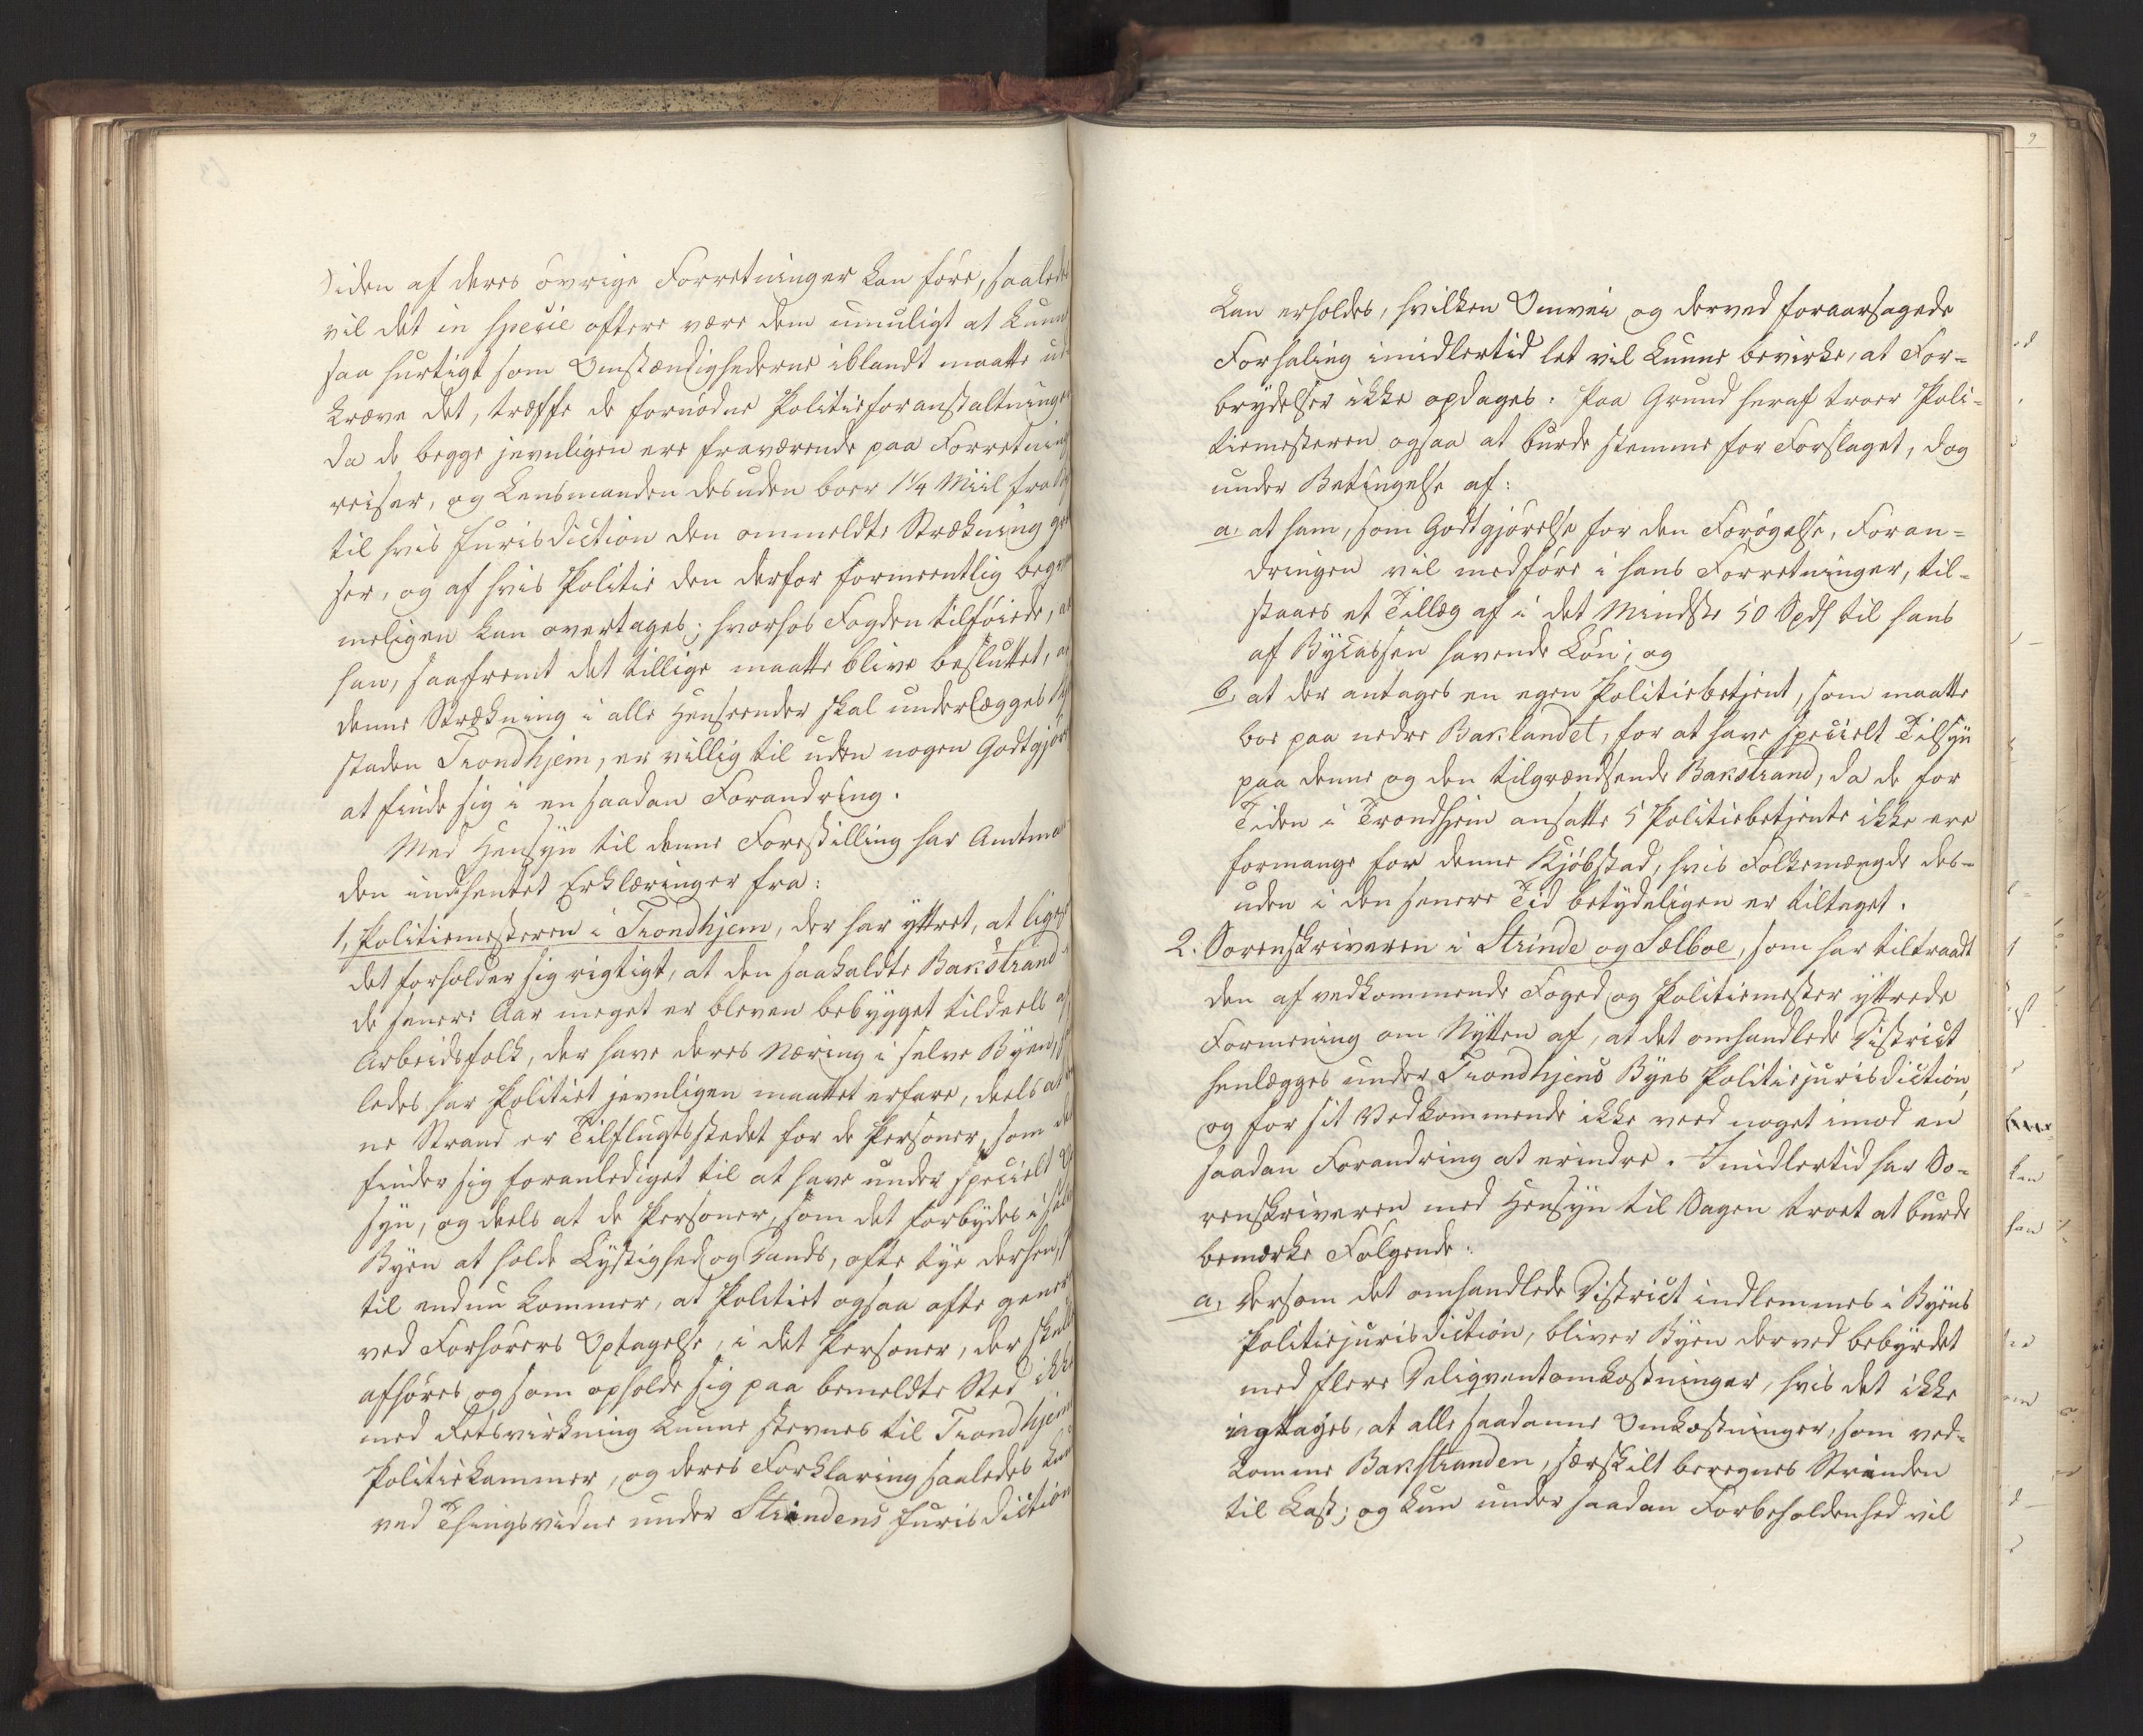 Siden af deres øvrige Forretninger kan føre, saaledes
vil det in specie oftere være dem umuligt at kunne
saa hurtigt som Omstændighederne iblandt maatte ud-
kræve det, træffe de fornødne Politieforanstaltninger
da de begge jevnligen ere fraværende paa Forretnings
reiser, og Lensmanden desuden boer 1 1/4 Miil fra
til hvis Jurisdiction den ommeldte Strækning
ser, og af hvis Politie den derfor formeentlig beqvem
meligen kan overtages; hvorhos Fogden tilføiede, at
han, saafremt det tillige maatte blive besluttet, at
denne Strækning i alle Henseender skal underlægges
staden Trondhjem, er villig til uden nogen Godtgjør
at finde sig i en saadan Forandring.
Med Hensyn til denne Forestilling har Amtman
den indhentet Erklæringer fra:
1, Politiemesteren i Trondhjem, der har yttret, at ligesom
det forholder sig rigtigt, at den saakaldte Bakstrand
de senere Aar meget er bleven bebygget tildeels af
Arbeidsfolk, der have deres Næring i selve Byen,
ledes har Politiet jevnligen maattet erfare, deels at
ne Strand er Tilflugtsstedet for de Personer, som det
finder sig foranlediget til at have under specielt
syn, og deels at de Personer, som det forbydes i selve
Byen at holde Lystighed og Dands, ofte tye derhen,
til endnu kommer, at Politiet ogsaa ofte generes
ved Forhørers Optagelse, i det Personer, der skulle
afhøres og som opholde sig paa bemeldte Sted ikke
med Retsvirkning kunne stevnes til Trondhjems
Politiekammer, og deres Forklaring saaledes kun
ved Thingsvidne under Strindens Jurisdiction
kan erholdes, hvilken Omvei og derved foraarsagede
Forhaling imidlertid let vil kunne bevirke, at For-
brydelser ikke opdages. Paa Grund heraf troer Poli-
tiemesteren ogsaa at burde stemme for Forslaget, dog
under Betingelse af:
a, at ham, som Godtgjørelse for den Forøgelse, Foran-
dringen vil medføre i hans Forretninger, til-
staaes et Tillæg af i det Mindste 50 Spd til hans
af Bycassen havende Løn; og
b, at der antages en egen Politiebetjent, som maatte
boe paa nedre Baklandet, for at have specielt Tilsyn
paa denne og den tilgrændsende Bakstrand, da de for
Tiden i Trondhjem ansatte 5 Politiebetjente ikke ere
formange for denne Kjøbstad, hvis Folkemængde des-
uden i den senere Tid betydeligen er tiltaget.
2. Sorenskriveren i Strinde og Sælboe, som har tiltraadt
den af vedkommende Foged og Politiemester yttrede
Formening om Nytten af, at det omhandlede District
henlægges under Trondhjens Byes Politiejurisdiction,
og for sit Vedkommende ikke veed noget imod en
saadan Forandring at erindre. Imidlertid har So-
renskriveren med Hensyn til Sagen troet at burde
bemærke Følgende:
a, dersom det omhandlede District indlemmes i Byens
Politiejurisdiction, bliver Byen derved bebyrdet
med flere Deliqventomkostninger, hvis det ikke
iagttages, at alle saadanne Omkostninger, som ved-
komme Bakstranden, særskilt beregnes Strinden
til Last; og kun under saadan Forbeholdenhed vil